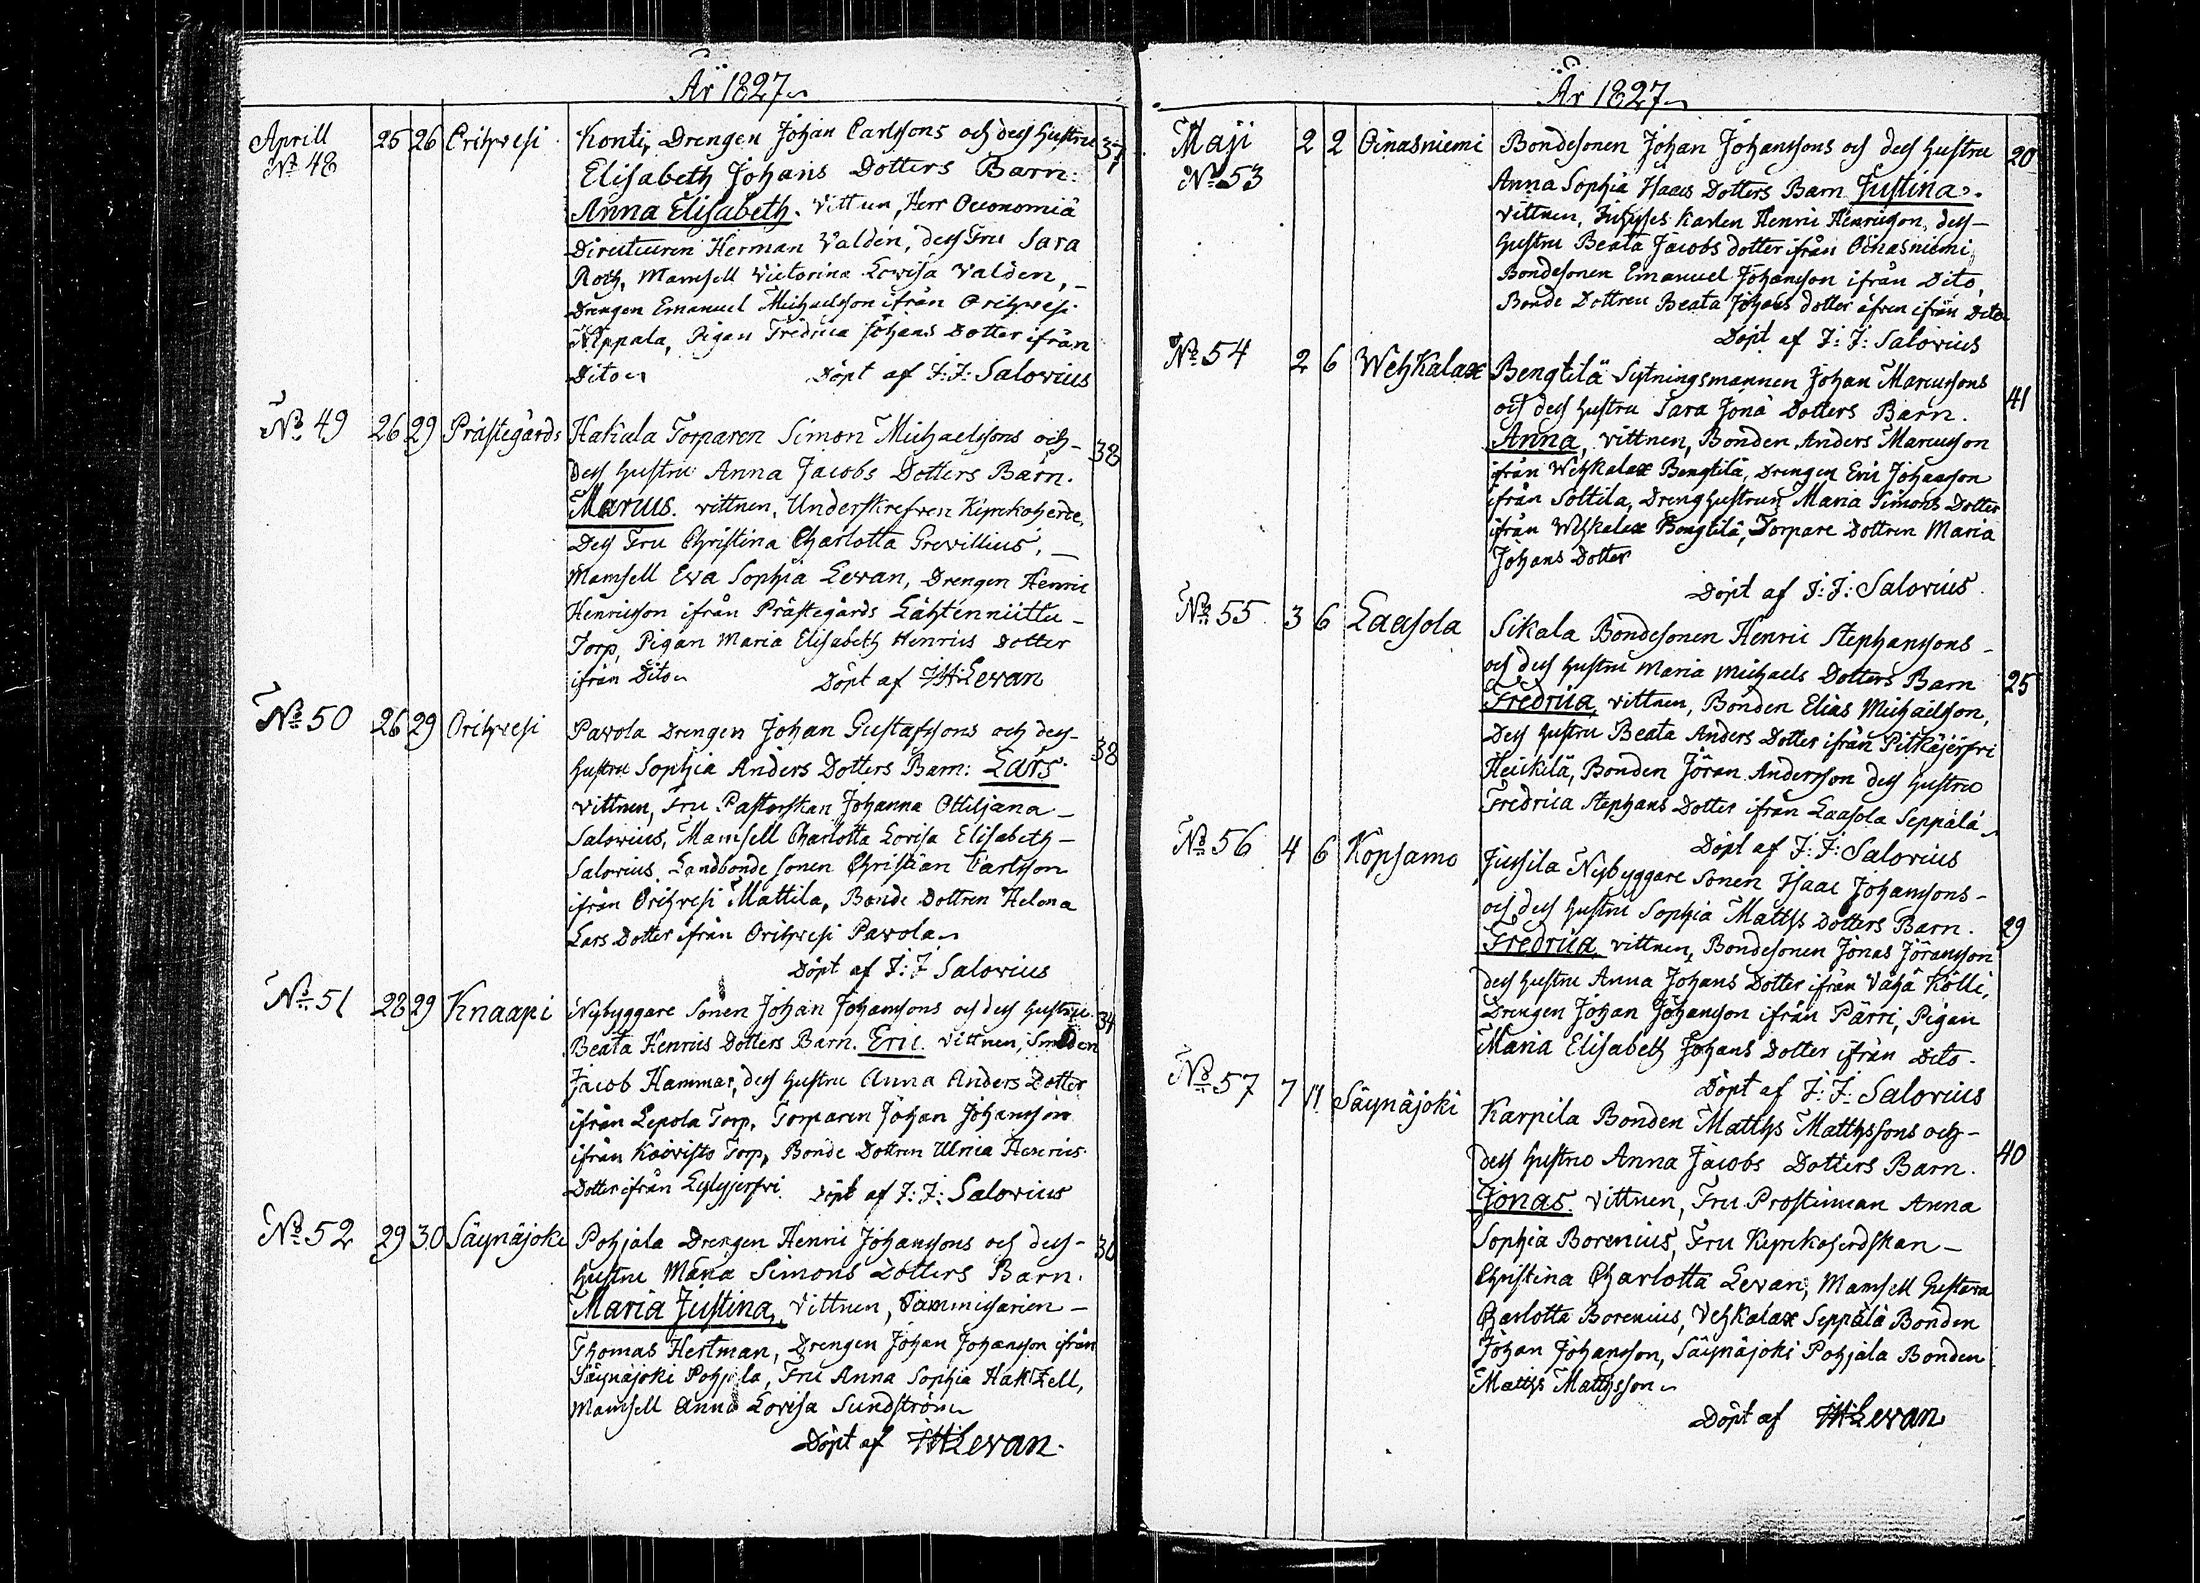 År 1827
Aprill 25 26 Orihvesi Konti, Drengen Johan Carlssons och dess hustru 37
No 48 Elisabeth Johans Dotters Barn:
Anna Elisabeth. vittnen, Herr Oeconomiä
Directeuren Herman Valdén, dess Fru Sara
Roth, Mamsell Victorina Lovisa Valden,
Drengen Emanuel Michaelsson ifrån Orihvesi
Uppala, Pigan Fredrica Johans Dotter ifrån
Dito Döpt af J: J: Salovius
No 49 26 29 Prästegårds Hakala Torparen Simon Michaelssons och 38
dess hustru Anna Jacobs Dotters Barn.
Marcus. vittnen, Underskrefven Kyrckoherde,
Dess Fru Christina Charlotta Grevillius,
Mamsell Eva Sophia Levan, Drengen Henric
Henricsson ifrån Prästegårds Lähtenniittu
Torp, Pigan Maria Elisabeth Henrics Dotter
ifrån Dito Döpt af JH Levan
No 50 26 29 Orihvesi Pavola Drengen Johan Gustafssons och dess 38
hustru Sophia Anders Dotters Barn: Lars
vittnen, Fru Pastorskan Johanna Ottiljana
Salovius, Mamsell Charlotta Lovisa Elisabeth
Salovius, Landbonde sonen Christian Carlsson
ifrån Orihvesi Mattila, Bonde Dottren Helena
Lars Dotter ifrån Orihvesi Pavola
Döpt af J: J Salovius
No 51 28 29 Knaapi Nybyggare Sonen Johan Johanssons och dess hustru 34
Beata Henrics Dotters Barn. Eric. vittnen, Smeden
Jacob Hammar, dess hustru Anna Anders Dotter
ifrån Lepola Torp, Torparen Johan Johansson
ifrån Koivisto Torp, Bonde Dottren Ulrica Henrics
Dotter ifrån Lylyjerfvi Döpt af J: J: Salovius
No 52 29 30 Säynäjoki Pohjala Drengen Henric Johanssons och dess 30
hustru Maria Simons Dotters Barn.
Maria Justina, vittnen, Commissarien
Thomas Hertman, Drengen Johan Johansson ifrån
Säynäjoki Pohjala, Fru Anna Sophia Hakzell,
Mamsell Anna Lovisa Sundström
Döpt af JH Levan
År 1827
Maji 2 2 Oinasniemi Bondesonen Johan Johanssons och dess hustru 20
No 53 Anna Sophia Isaacs Dotters Barn Justina.
vittnen, Karlen Henric Henricsson, dess
hustru Beata Jacobs dotter ifrån Oinasniemi,
Bondesonen Emanuel Johansson ifrån Dito,
Bonde Dottren Beata Johans dotter äfven ifrån Dito
Döpt af J: J: Salovius
No 54 2 6 Wehkalax Bengtilä Sytningsmannen Johan Marcussons 41
och dess hustru Sara Jonä Dotters Barn.
Anna, vittnen, Bonden Anders Marcusson
ifrån Wehkalax Bengtilä, Drengen Eric Johansson
ifrån Soltila, Dreng hustrun Maria Simons Dotter
ifrån Wehkalax Bengtilä, Torpare Dottren Maria
Johans Dotter
Döpt af J: J: Salovius
No 55 3 6 Laasola Sikala Bondesonen Henric Stephanssons
och dess hustru Maria Michaels Dotters Barn 25
Fredrica, vittnen, Bonden Elias Michaelsson,
Dess hustru Beata Anders Dotter ifrån Pitkäjerfvi
Heickilä, Bonden Jöran Andersson dess hustru
Fredrica Stephans Dotter ifrån Laasola Seppälä
Döpt af J: J: Salovius
No 56 4 6 Kopsamo Jussila Nybyggare Sonen Isaac Johanssons
och dess hustru Sophia Matths Dotters Barn. 29
Fredrica, vittnen, Bondesonen Jonas Jöransson
dess hustru Anna Johans Dotter ifrån Vähä Kölli,
Drengen Johan Johansson ifrån Pärri, Pigan
Maria Elisabeth Johans Dotter ifrån Dito.
Döpt af J: J: Salovius
No 57 7 11 Säynäjoki Karpila Bonden Matths Matthssons och
dess hustru Anna Jacobs Dotters Barn. 40
Jonas. vittnen, Fru Prostinnan Anna
Sophia Borenius, Fru Kyrckoherdskan
Christina Charlotta Levan, Mamsell Gustava
Charlotta Borenius, Vehkalax Seppälä Bonden
Johan Johansson, Säynäjoki Pohjala Bonden
Matths Matthsson
Döpt af JH Levan